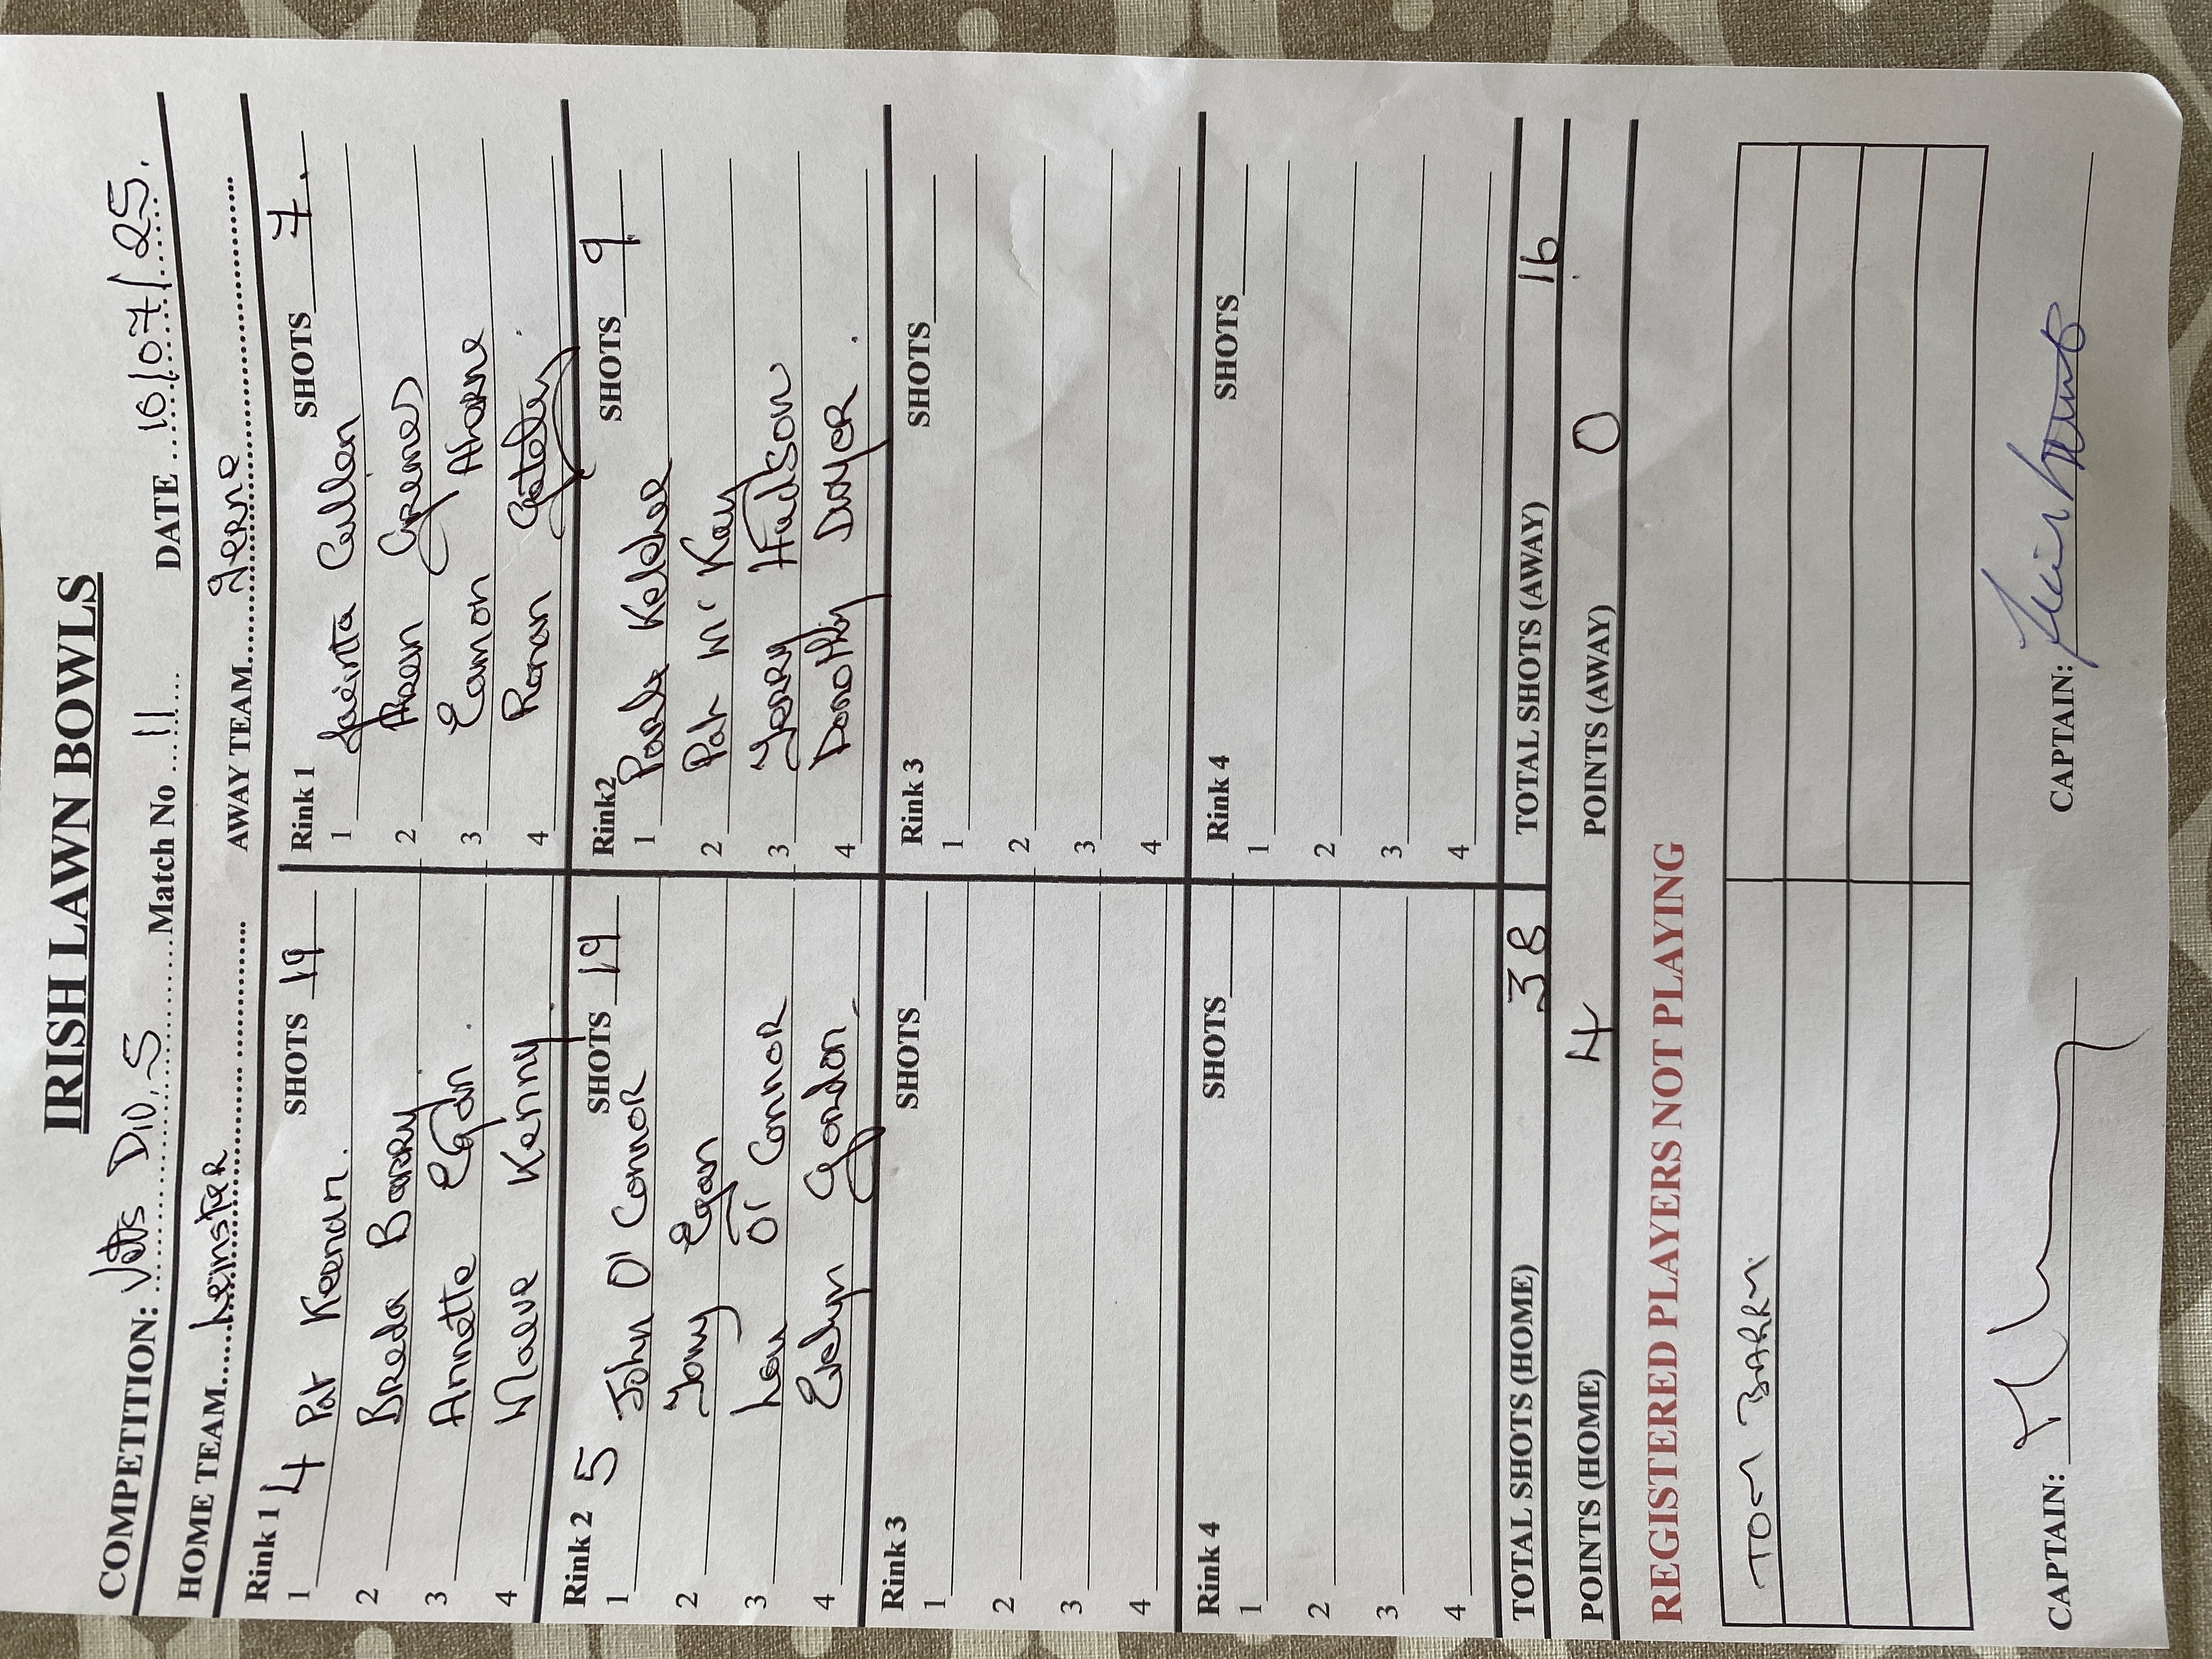 IRISH LAWN BOWLS
COMPETITION: Vets Div. 5 Match No 11 DATE 16/07/25.
HOME TEAM Leinster AWAY TEAM Herne
Rink 1 4 SHOTS 19 Rink 1 SHOTS 7.
1 Pat Keenan. 1 Jacinta Cullen
2 Breda Barry 2 Greenes
3 Annette Egan 3 Eamon Ahorne
4 Maeve Kenny 4 Ronan Gately
Rink 2 5 SHOTS 19 Rink2 SHOTS 9
1 John O'Connor 1 Paula Keleher
2 Tony Egan 2 Pat Mc Kay
3 Lou O'Connor 3 Gerry Hudson
4 Evelyn Gordon 4 Dorothy Dwyer.
Rink 3 SHOTS Rink 3 SHOTS
1 1
2 2
3 3
4 4
Rink 4 SHOTS Rink 4 SHOTS
1 1
2 2
3 3
4 4
TOTAL SHOTS (HOME) 38 TOTAL SHOTS (AWAY) 16
POINTS (HOME) 4 POINTS (AWAY) 0
REGISTERED PLAYERS NOT PLAYING
TOM BARRY
CAPTAIN: CAPTAIN: